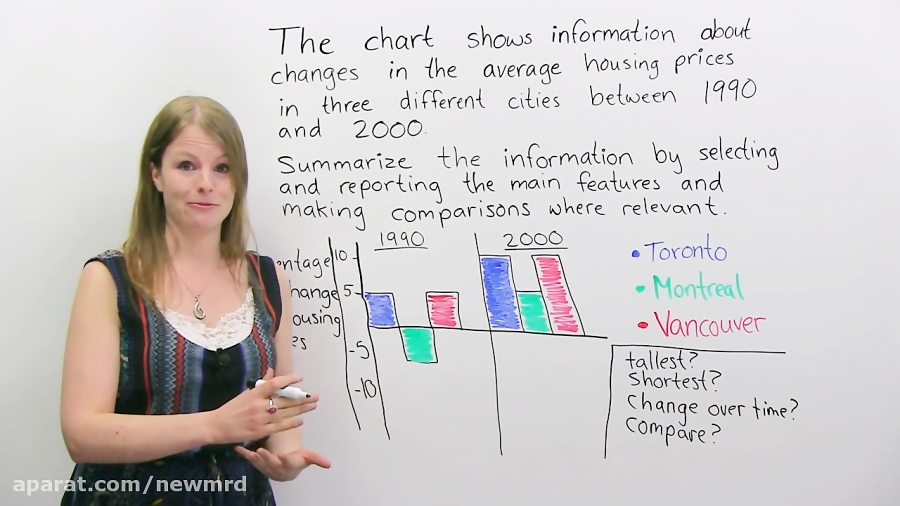 The chart shows information about
changes in the average housing prices
in three different cities between 1990
and 2000.
Summarize the information by selecting
and reporting the main features and
making comparisons where relevant.
1990
2000
10
5
-5
-10
• Toronto
• Montreal
• Vancouver
tallest?
Shortest?
Change over time?
Compare?
aparat.com/newmrd